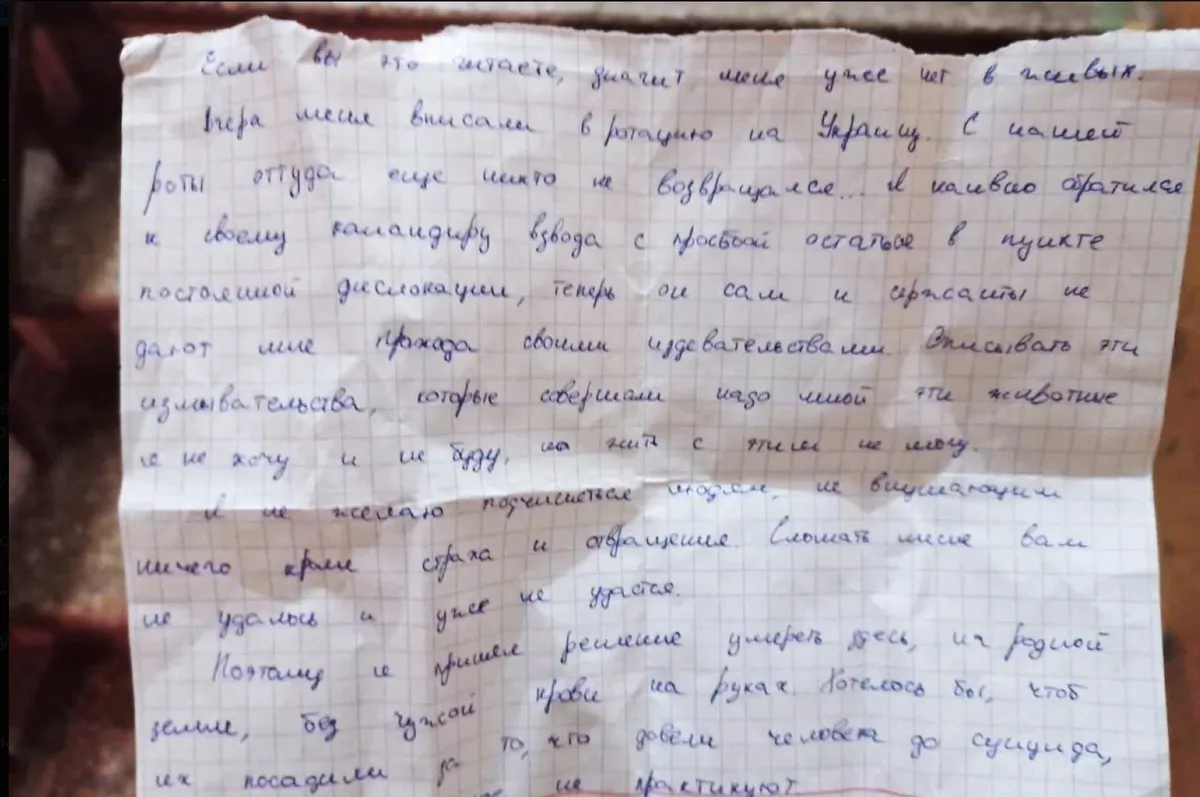 Если вы это читаете, значит меня уже нет в живых.
Вчера меня вписали в ротацию на Украину. С нашей
роты оттуда еще никто не возвращался... Я наивно обратился
к своему командиру взвода с просьбой остаться в пункте
постоянной дислокации, теперь он сам и сержанты не
дают мне прохода своими издевательствами. Описывать эти
измывательства, которые совершали надо мной эти животные
я не хочу и не буду, но жить с этим не могу.
Я не желаю подчиняться людям, не внушающим
ничего кроме страха и отвращения. Сломать меня вам
не удалось и уже не удастся.
Поэтому я принял решение умереть здесь, на родной
земле, без чужой крови на руках. Хотелось бы, чтоб
их посадили за то, что довели человека до суицида,
не практикуют